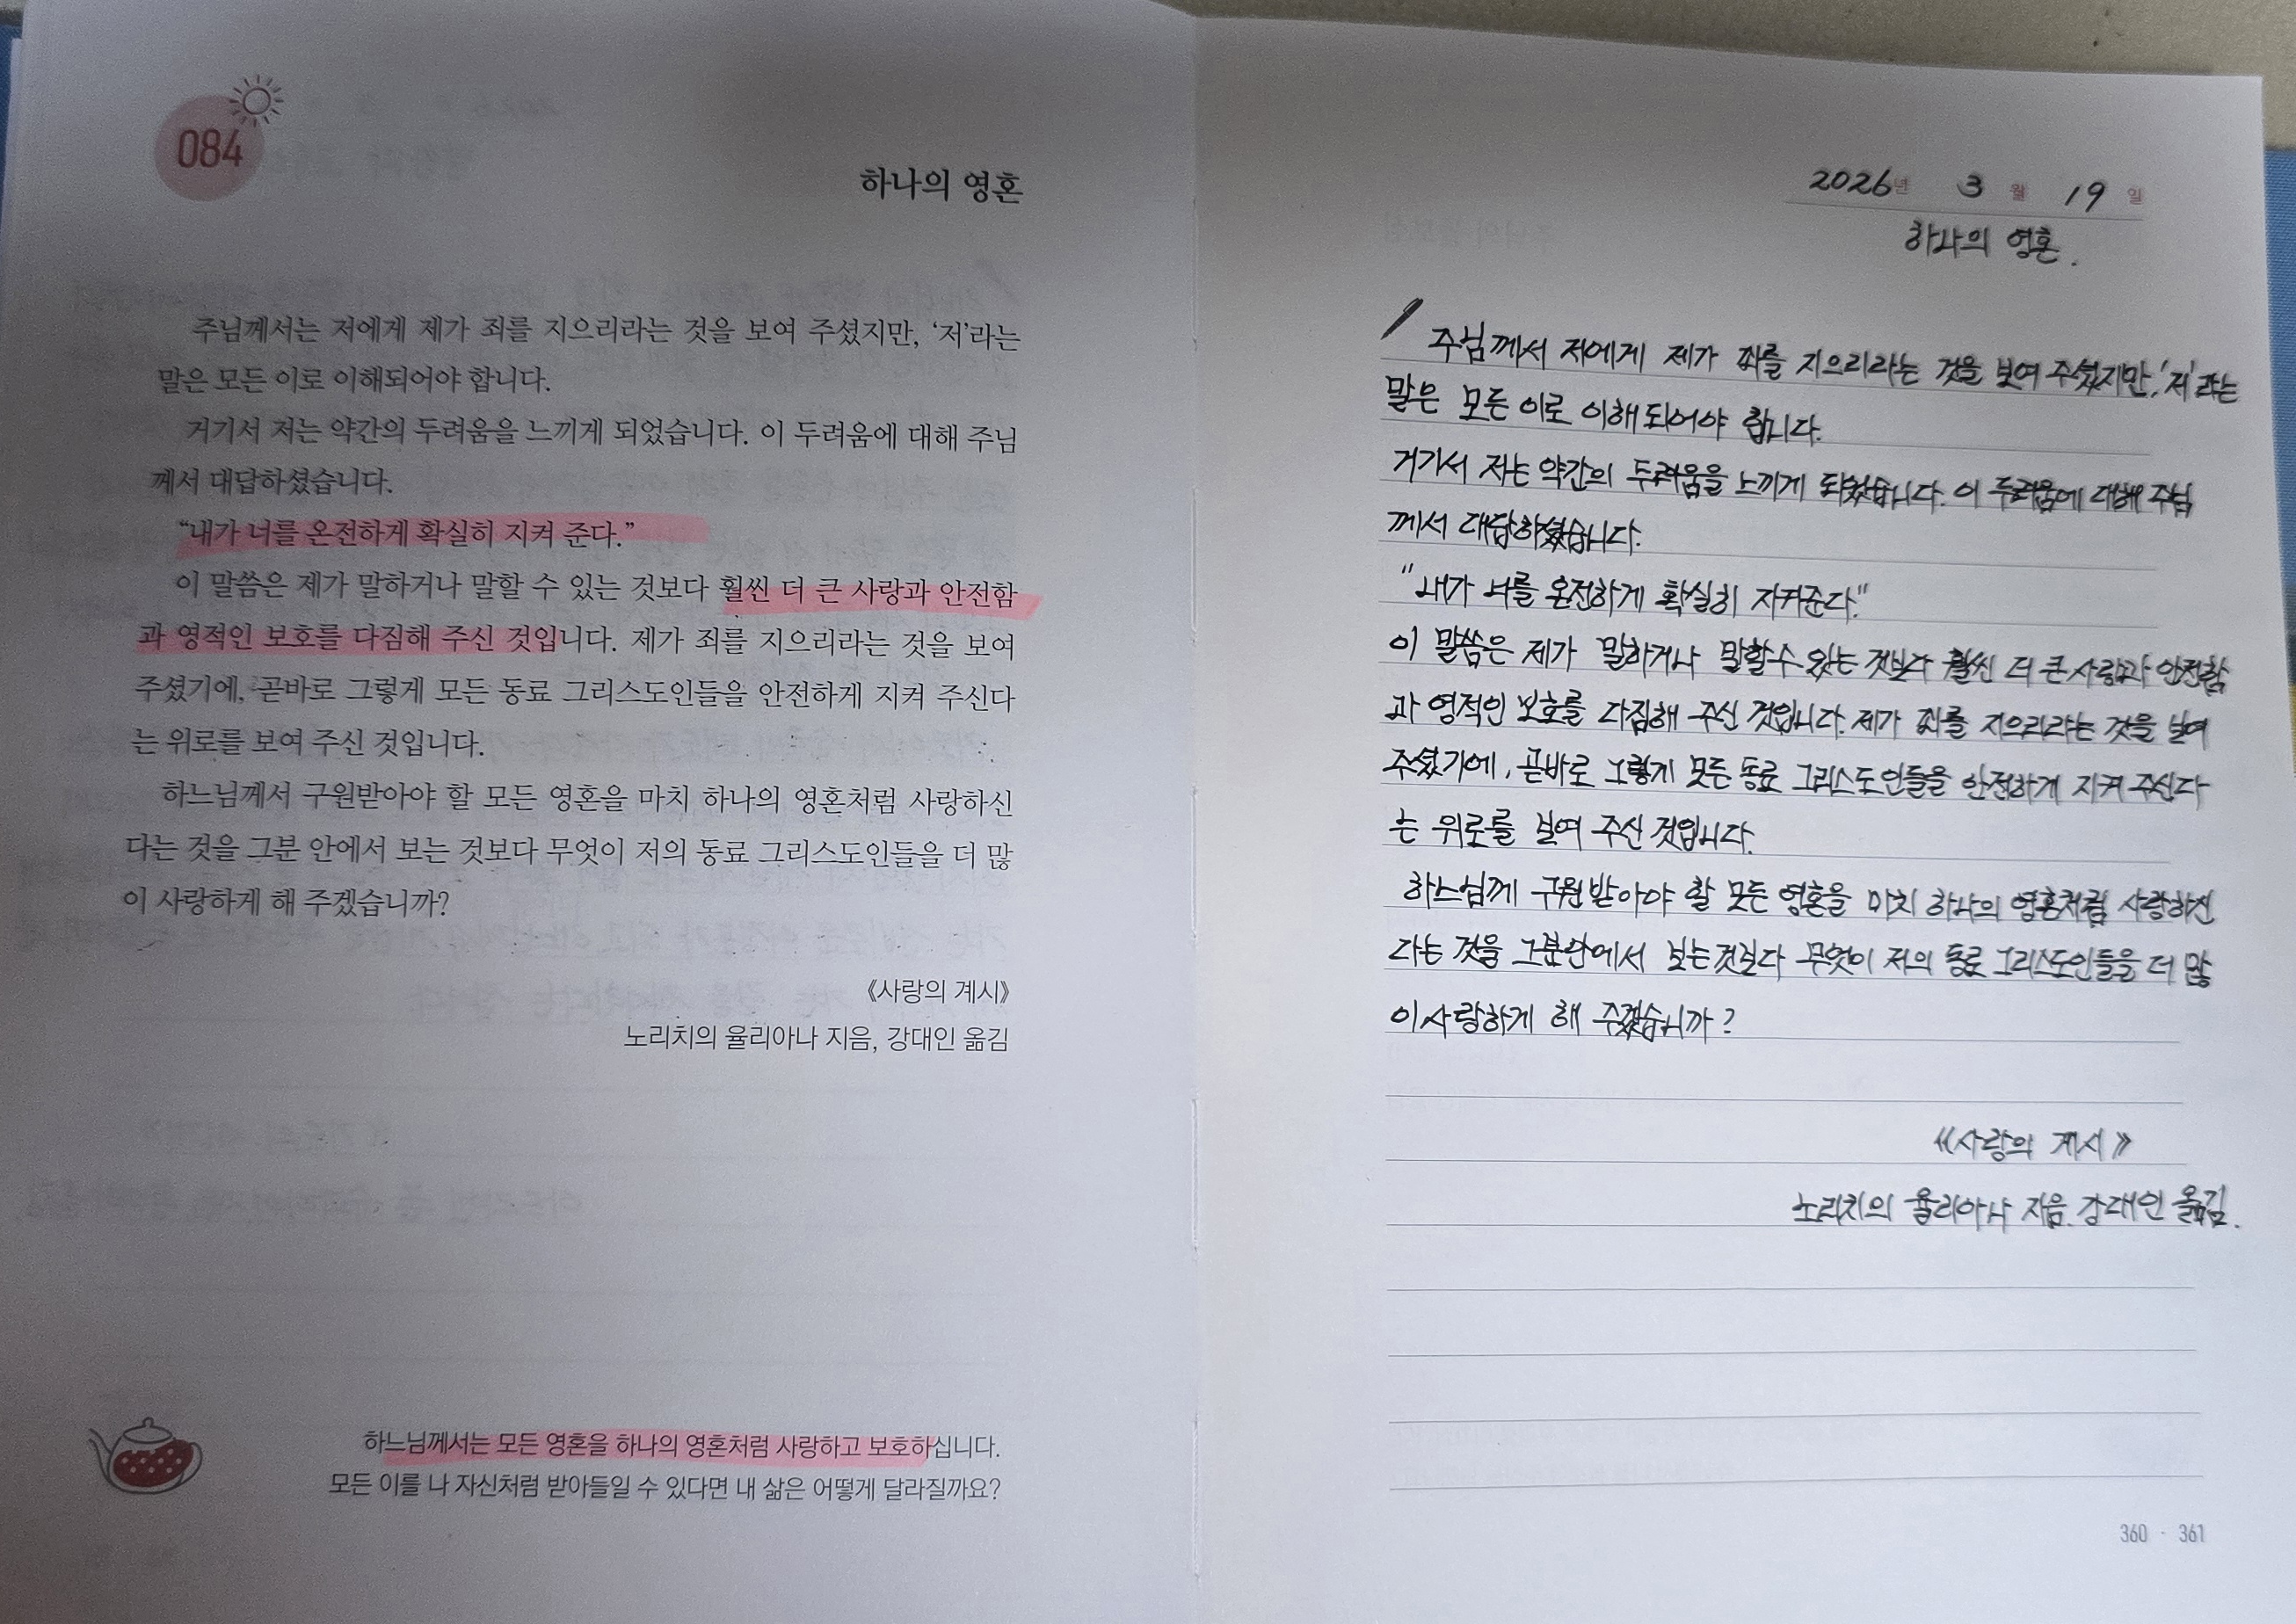 084
하나의 영혼
주님께서는 저에게 제가 죄를 지으리라는 것을 보여 주셨지만, ‘저’라는
말은 모든 이로 이해되어야 합니다.
거기서 저는 약간의 두려움을 느끼게 되었습니다. 이 두려움에 대해 주님
께서 대답하셨습니다.
“내가 너를 온전하게 확실히 지켜 준다.”
이 말씀은 제가 말하거나 말할 수 있는 것보다 훨씬 더 큰 사랑과 안전함
과 영적인 보호를 다짐해 주신 것입니다. 제가 죄를 지으리라는 것을 보여
주셨기에, 곧바로 그렇게 모든 동료 그리스도인들을 안전하게 지켜 주신다
는 위로를 보여 주신 것입니다.
하느님께서 구원받아야 할 모든 영혼을 마치 하나의 영혼처럼 사랑하신
다는 것을 그분 안에서 보는 것보다 무엇이 저의 동료 그리스도인들을 더 많
이 사랑하게 해 주겠습니까?
《사랑의 계시》
노리치의 율리아나 지음, 강대인 옮김
하느님께서는 모든 영혼을 하나의 영혼처럼 사랑하고 보호하십니다.
모든 이를 나 자신처럼 받아들일 수 있다면 내 삶은 어떻게 달라질까요?
2026년 3월 19일
하나의 영혼.
주님께서 저에게 제가 죄를 지으리라는 것을 보여 주셨지만, '저'라는
말은 모든 이로 이해되어야 합니다.
거기서 저는 약간의 두려움을 느끼게 되었습니다. 이 두려움에 대해 주님
께서 대답하셨습니다.
"내가 너를 온전하게 확실히 지켜준다."
이 말씀은 제가 말하거나 말할수 있는 것보다 훨씬 더 큰 사랑과 안전함
과 영적인 보호를 다짐해 주신 것입니다. 제가 죄를 지으리라는 것을 보여
주셨기에, 곧바로 그렇게 모든 동료 그리스도인들을 안전하게 지켜 주신다
는 위로를 보여 주신 것입니다.
하느님께 구원받아야 할 모든 영혼을 마치 하나의 영혼처럼 사랑하신
다는 것을 그분안에서 보는것보다 무엇이 저의 동료 그리스도인들을 더 많
이사랑하게 해 주겠습니까?
《사랑의 계시》
노리치의 율리아나 지음. 강대인 옮김.
360 · 361